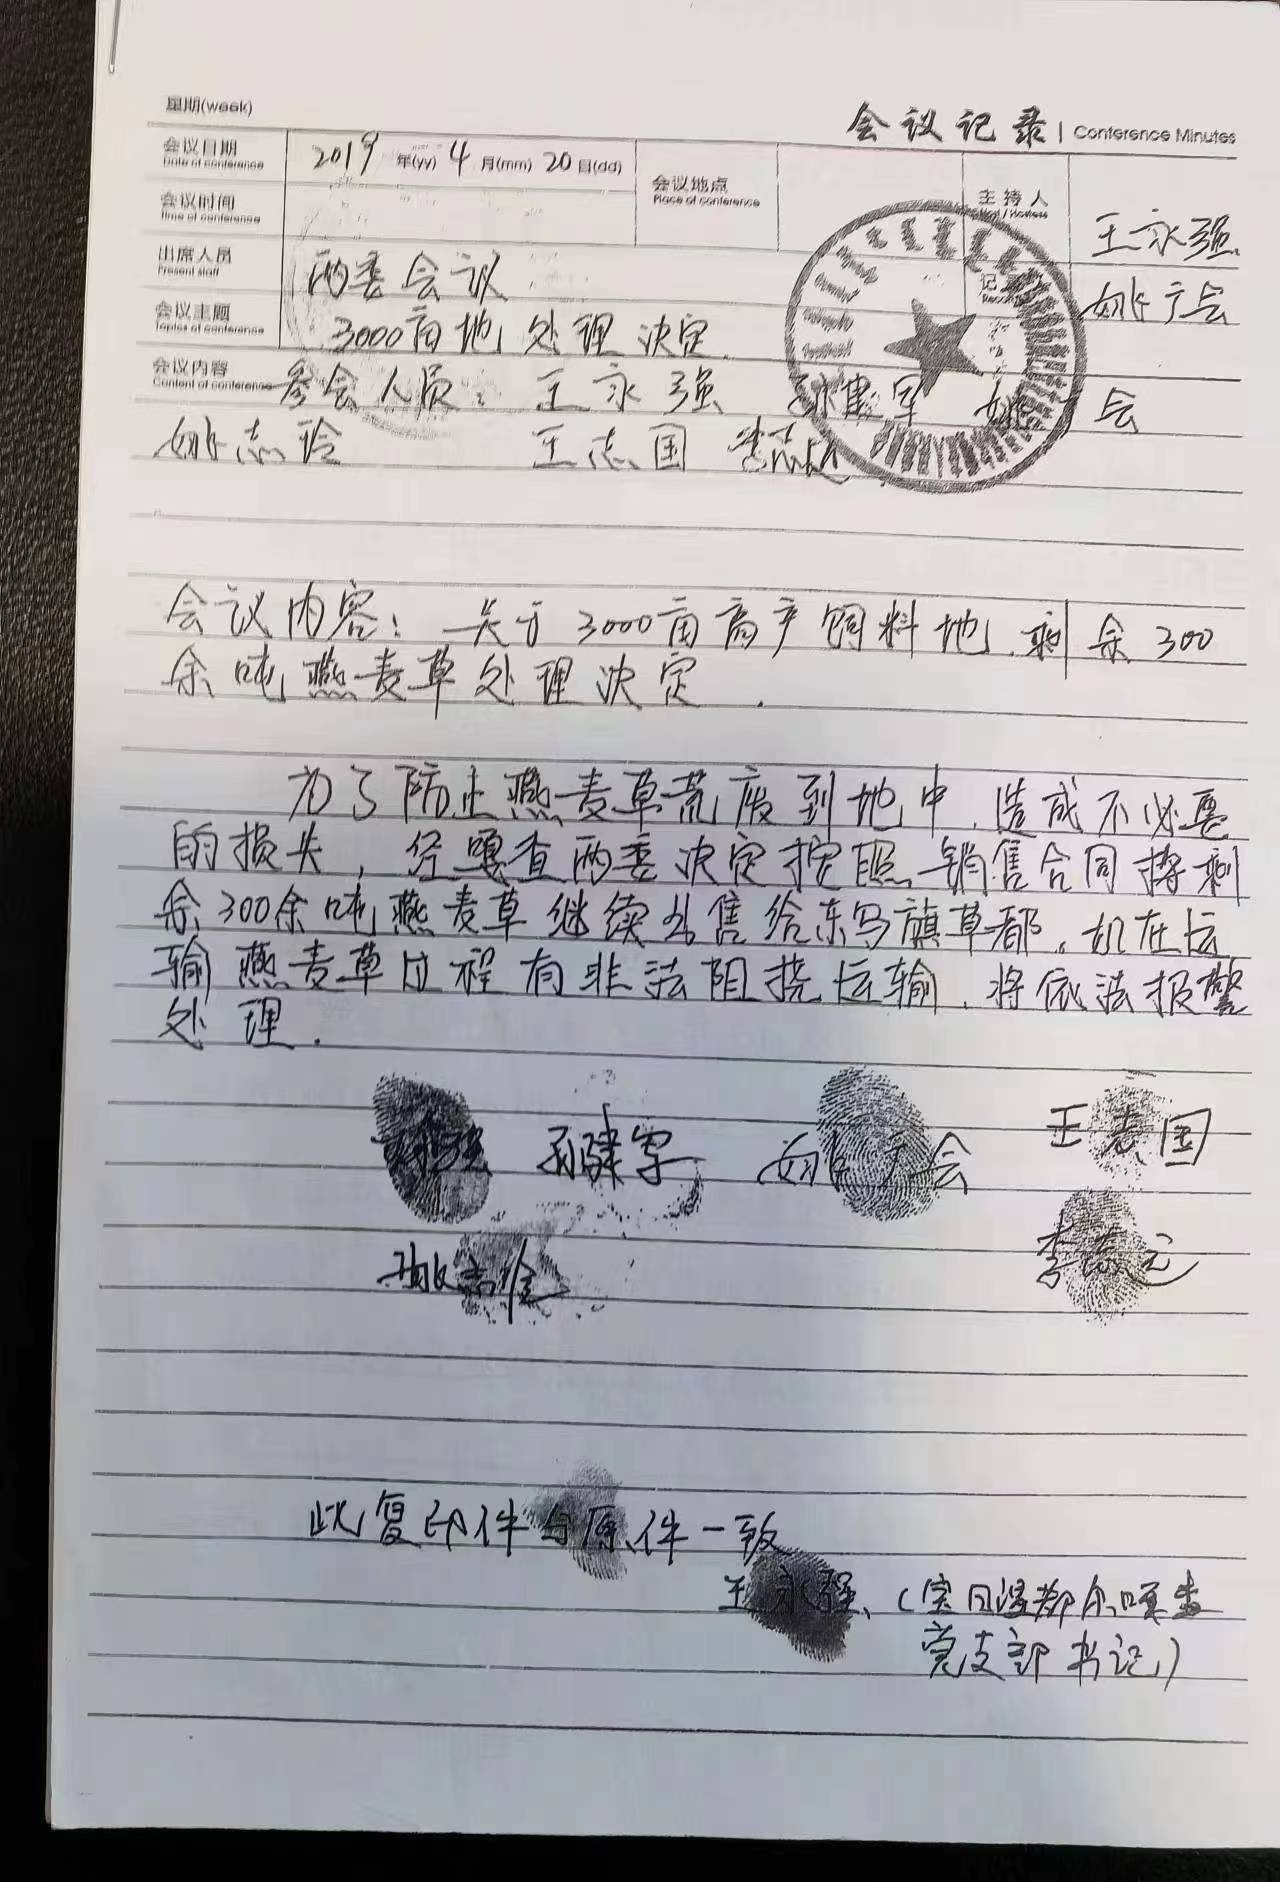 星期(week)
会议记录 | Conference Minutes
会议日期 Date of conference 2019 年(yy) 4 月(mm) 20 日(dd) 会议地点 Place of conference 主持人 王永强
会议时间 Time of conference
出席人员 Present staff 两委会议 记 姚广会
会议主题 Topics of conference 3000亩地处理决定.
会议内容 Content of conference 参会人员: 王永强 孙建军 姚 会
姚志玲 王志国 李志
会议内容: 关于3000亩高产饲料地.剩余300
余吨燕麦草处理决定.
为了防止燕麦草荒废到地中.造成不必要
的损失,经嘎查两委决定按照销售合同将剩
余300余吨燕麦草继续出售给东乌旗草都.如在运
输燕麦草过程有非法阻挠运输.将依法报警
处理.
孙建军 姚广会 王志国
姚志 李志元
此复印件与原件一致
王永强、(宝日温都尔嘎查
党支部书记)